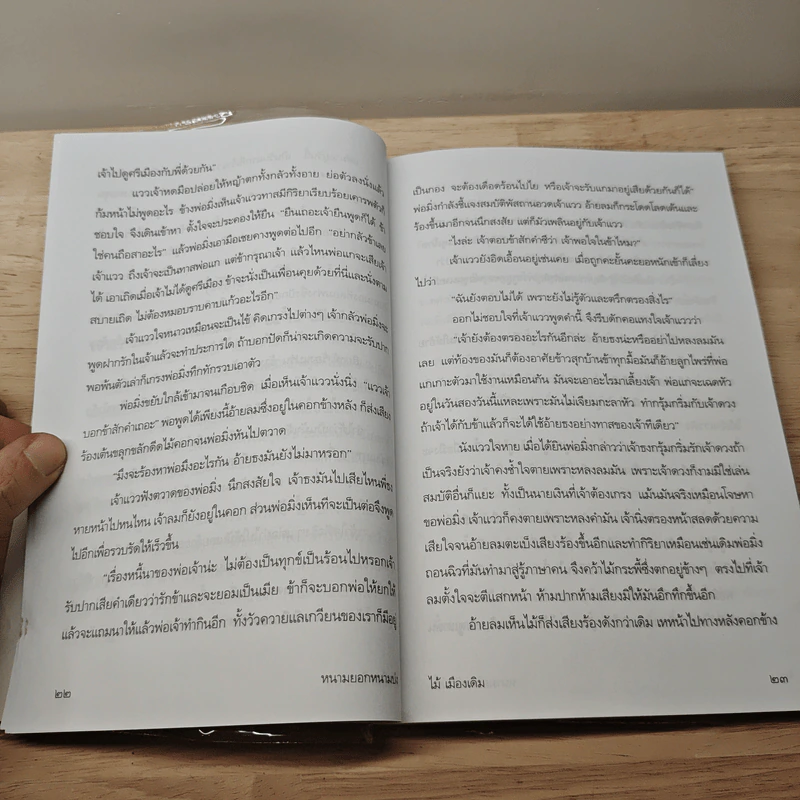 เจ้าไปดูศรีเมืองกับพี่ด้วยกัน"
แววเจ้าหดมือปล่อยให้หญ้าตกทั้งกลัวทั้งอาย ย่อตัวลงนั่งแล้ว
ก้มหน้าไม่พูดอะไร ข้างพ่อมิ่งเห็นเจ้าแววทาสมีกิริยาเรียบร้อยเคารพตัวก็
ชอบใจ จึงเดินเข้าหา ตั้งใจจะประคองให้ยืน "ยืนเถอะเจ้ายืนพูดก็ได้ ข้า
ใช่คนถือสาอะไร" แล้วพ่อมิ่งเอามือเชยคางพูดต่อไปอีก "อย่ากลัวข้าเลย
เจ้าแวว ถึงเจ้าจะเป็นทาสพ่อแก แต่ข้ากรุณาเจ้า แล้วไหนพ่อแกจะเสียเจ้า
ได้ เอาเถิดเมื่อเจ้าไม่ได้ดูศรีเมือง ข้าจะนั่งเป็นเพื่อนคุยด้วยที่นี่และนั่งตาม
สบายเถิด ไม่ต้องหมอบราบคาบแก้วอะไรอีก"
เจ้าแววใจหนาวเหมือนจะเป็นไข้ คิดเกรงไปต่างๆ เจ้ากลัวพ่อมิ่งจะ
พูดฝากรักในเจ้าแล้วจะทำประการใด ถ้าบอกปัดก็น่าจะเกิดความจะรับปาก
พอพ้นตัวเล่าก็เกรงพ่อมิ่งทึกทักรวบเอาตัว
พ่อมิ่งขยับใกล้เข้ามาจนเกือบชิด เมื่อเห็นเจ้าแววนั่งนิ่ง "แววเจ้า
บอกข้าสักคำเถอะ" พอพูดได้เพียงนี้อ้ายลมซึ่งอยู่ในคอกข้างหลัง ก็ส่งเสียง
ร้องเต้นขลุกขลักดีดไม้คอกจนพ่อมิ่งหันไปตวาด
"มึงจะร้องหาพ่อมึงอะไรกัน อ้ายธงมันยังไม่มาหรอก"
เจ้าแววฟังตวาดของพ่อมิ่ง นึกสงสัยใจ เจ้าธงมันไปเสียไหนที่ธง
หายหน้าไปหนไหน เจ้าลมก็ยังอยู่ในคอก ส่วนพ่อมิ่งเห็นทีจะเป็นต่อจึงพูด
ไปอีกเพื่อรวบรัดให้เร็วขึ้น
"เรื่องหนี้นาของพ่อเจ้าน่ะ ไม่ต้องเป็นทุกข์เป็นร้อนไปหรอกเจ้า
รับปากเสียคำเดียวว่ารักข้าและจะยอมเป็นเมีย ข้าก็จะบอกพ่อให้ยกให้
แล้วจะแถมนาให้แล้วพ่อเจ้าทำกินอีก ทั้งวัวควายแลเกวียนของเราก็มีอยู่
หนามยอกหนามบ่ง
๒๒
เป็นกอง จะต้องเดือดร้อนไปไย หรือเจ้าจะรับแกมาอยู่เสียด้วยกันก็ได้"
พ่อมิ่งกำลังชี้แจงสมบัติพัสถานอวดเจ้าแวว อ้ายลมก็กระโดดโลดเต้นและ
ร้องขึ้นมาอีกจนนึกสงสัย แต่ก็มัวเพลินอยู่กับเจ้าแวว
"ไงล่ะ เจ้าตอบข้าสักคำซีว่า เจ้าพอใจในข้าไหม?"
เจ้าแววยังอิดเอื้อนอยู่เช่นเคย เมื่อถูกคะยั้นคะยอหนักเข้าก็เลี่ยง
ไปว่า
"ฉันยังตอบไม่ได้ เพราะยังไม่รู้ตัวและตรึกตรองสิ่งไร"
ออกไม่ชอบใจที่เจ้าแววพูดคำนี้ จึงรีบดักคอแทงใจเจ้าแววว่า
"เจ้ายังต้องตรองอะไรกันอีกล่ะ อ้ายธงน่ะหรืออย่าไปหลงลมมัน
เลย แต่ท้องของมันก็ต้องอาศัยข้าวสุกบ้านข้าทุกมื้อมันก็อ้ายลูกไพร่ที่พ่อ
แกเกาะตัวมาใช้งานเหมือนกัน มันจะเอาอะไรมาเลี้ยงเจ้า พ่อแกจะเฉดหัว
อยู่ในวันสองวันนี้แหละเพราะมันไม่เจียมกะลาหัว ทำกรุ้มกริ่มกับเจ้าดวง
ถ้าเจ้าได้กับข้าแล้วก็จะได้ใช้อ้ายธงอย่างทาสของเจ้าทีเดียว"
นังแววใจหาย เมื่อได้ยินพ่อมิ่งกล่าวว่าเจ้าธงกรุ้มกริ่มรักเจ้าดวงถ้า
เป็นจริงยังว่าเจ้าคงช้ำใจตายเพราะหลงลมมัน เพราะเจ้าดวงก็งามมีใช่เล่น
สมบัติอื่นก็แยะ ทั้งเป็นนายเงินที่เจ้าต้องเกรง แม้นมันจริงเหมือนโจษหา
ของพ่อมิ่ง เจ้าแววก็คงตายเพราะหลงคำมัน เจ้านิ่งตรองหน้าสลดด้วยความ
เสียใจจนอ้ายลมตะเบ็งเสียงร้องขึ้นอีกและทำกิริยาเหมือนเช่นเดิมพ่อมิ่ง
ถอนฉิวที่มันทำมาสู่รู้ภาษาคน จึงคว้าไม้กระพี้ซึ่งตกอยู่ข้างๆ ตรงไปที่เจ้า
ลมตั้งใจจะตีแสกหน้า ห้ามปากห้ามเสียงมิให้มันอึกทึกขึ้นอีก
อ้ายลมเห็นไม้ก็ส่งเสียงร้องดังกว่าเดิม เหหน้าไปทางหลังคอกข้าง
ไม้ เมืองเดิม
๒๓